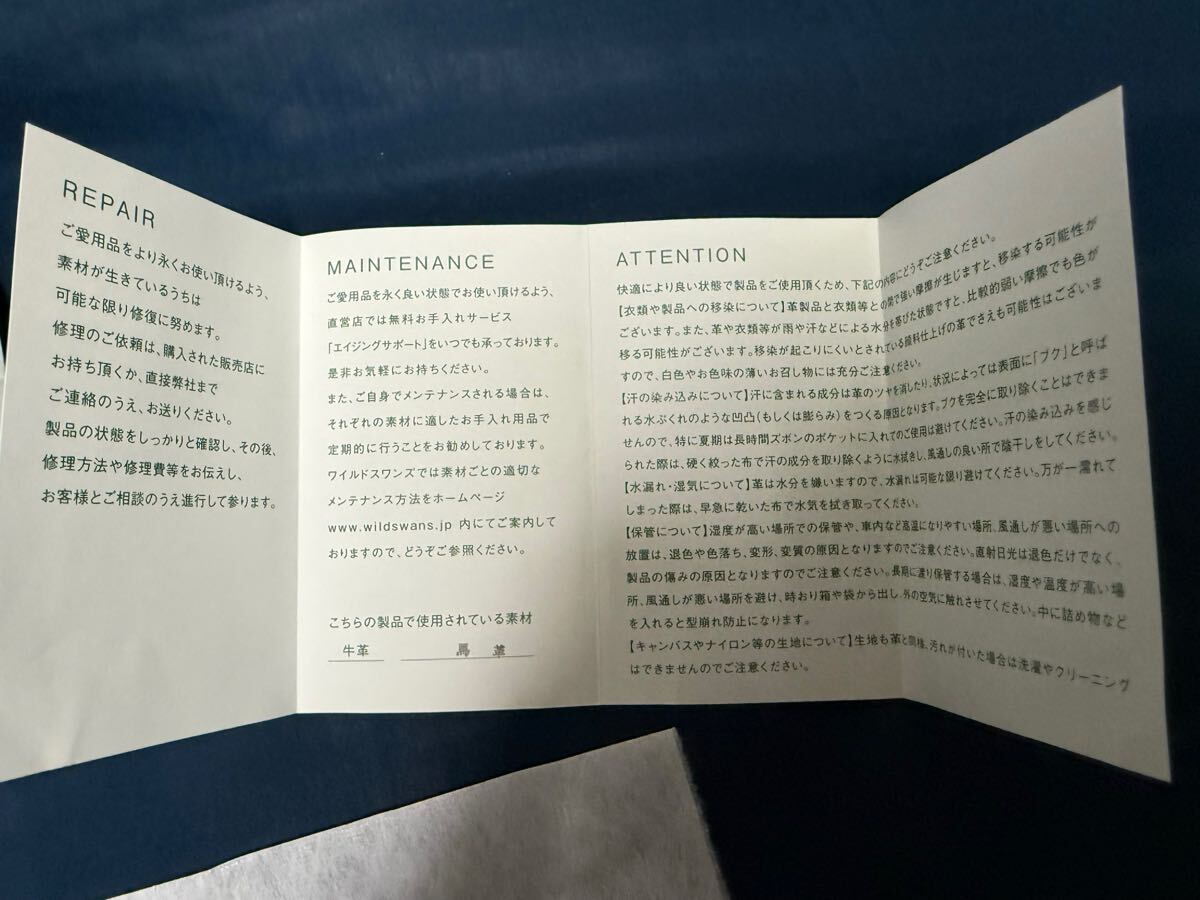 REPAIR
ご愛用品をより永くお使い頂けるよう、
素材が生きているうちは
可能な限り修復に努めます。
修理のご依頼は、購入された販売店に
お持ち頂くか、直接弊社まで
ご連絡のうえ、お送りください。
製品の状態をしっかりと確認し、その後、
修理方法や修理費等をお伝えし、
お客様とご相談のうえ進行して参ります。
MAINTENANCE
ご愛用品を永く良い状態でお使い頂けるよう、
直営店では無料お手入れサービス
「エイジングサポート」をいつでも承っております。
是非お気軽にお持ちください。
また、ご自身でメンテナンスされる場合は、
それぞれの素材に適したお手入れ用品で
定期的に行うことをお勧めしております。
ワイルドスワンズでは素材ごとの適切な
メンテナンス方法をホームページ
www.wildswans.jp 内にてご案内して
おりますので、どうぞご参照ください。
こちらの製品で使用されている素材
牛革 馬 革
ATTENTION
快適により良い状態で製品をご使用頂くため、下記の内容にどうぞご注意ください。
【衣類や製品への移染について】革製品と衣類等との間で強い摩擦が生じますと、移染する可能性が
ございます。また、革や衣類等が雨や汗などによる水分を帯びた状態ですと、比較的弱い摩擦でも色が
移る可能性がございます。移染が起こりにくいとされている顔料仕上げの革でさえも可能性はございま
すので、白色やお色味の薄いお召し物には充分ご注意ください。
【汗の染み込みについて】汗に含まれる成分は革のツヤを消したり、状況によっては表面に「ブク」と呼ば
れる水ぶくれのような凹凸(もしくは膨らみ)をつくる原因となります。ブクを完全に取り除くことはできま
せんので、特に夏期は長時間ズボンのポケットに入れてのご使用は避けてください。汗の染み込みを感じ
られた際は、硬く絞った布で汗の成分を取り除くように水拭きし、風通しの良い所で陰干しをしてください。
【水漏れ・湿気について】革は水分を嫌いますので、水漏れは可能な限り避けてください。万が一濡れて
しまった際は、早急に乾いた布で水気を拭き取ってください。
【保管について】湿度が高い場所での保管や、車内など高温になりやすい場所、風通しが悪い場所への
放置は、退色や色落ち、変形、変質の原因となりますのでご注意ください。直射日光は退色だけでなく、
製品の傷みの原因となりますのでご注意ください。長期に渡り保管する場合は、湿度や温度が高い場
所、風通しが悪い場所を避け、時おり箱や袋から出し、外の空気に触れさせてください。中に詰め物など
を入れると型崩れ防止になります。
【キャンバスやナイロン等の生地について】生地も革と同様、汚れが付いた場合は洗濯やクリーニング
はできませんのでご注意ください。